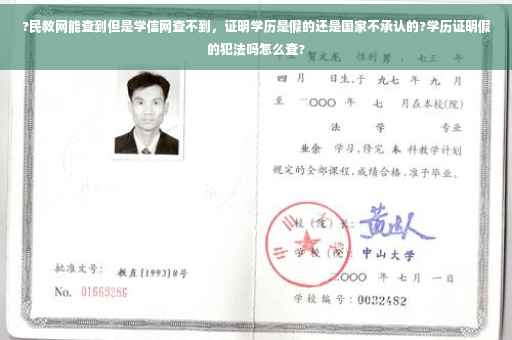 ?民教网能查到但是学信网查不到，证明学历是假的还是国家不承认的?学历证明假
的犯法吗怎么查?
贺文龙 性别 男 ，七三 年
四 月 日生,于 九七 年 九 月
至 二〇〇〇 年 七 月在本校(院)
法 学 专业
业余 学习,修完 本 科教学计划
规定的全部课程,成绩合格,准予毕业。
校 (院) 长:
学 校 (院): 中山大学
批准文号: 教直[1993]8号
二〇〇〇 年 七 月 一 日
No. 01669286
学校编号: 0032482